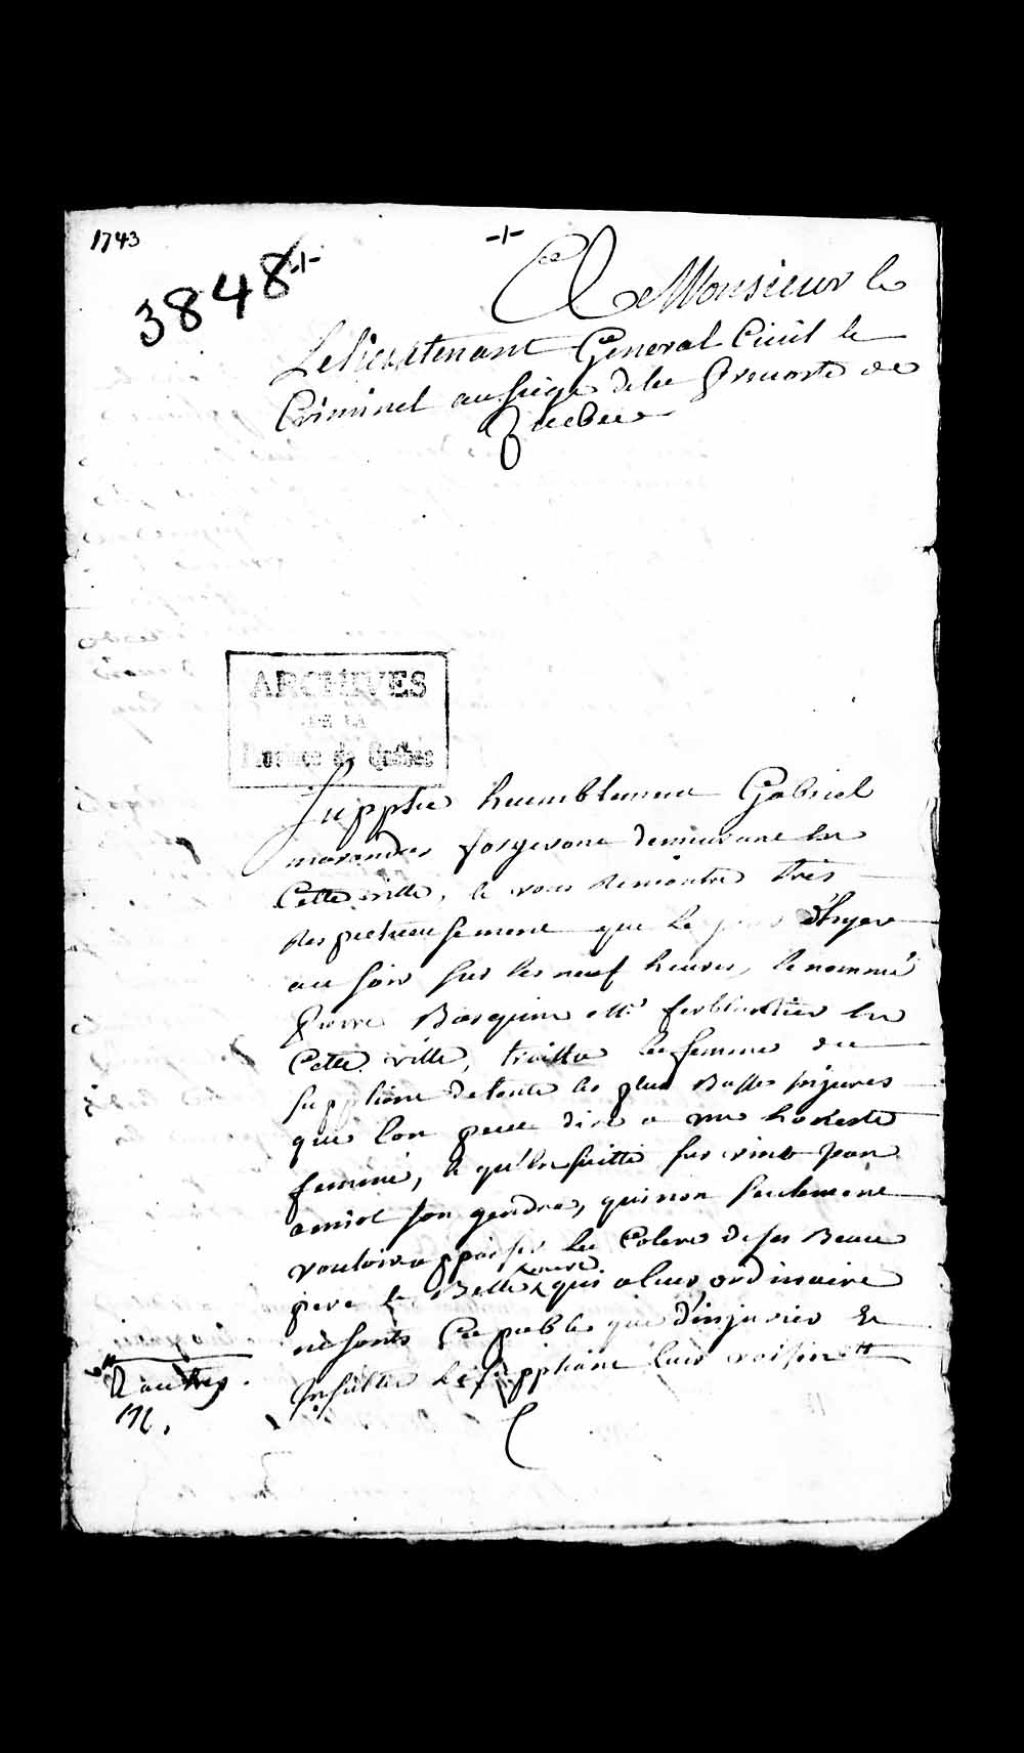 1743
3848
A Monsieur le
Lelieutenant General Civil le
Criminel au siege dela Prevosté de
Quebec
ARCHIVES
DE LA
Province de Québec
Supplie humblement Gabriel
forgeront demeurant En
Cette ville, Et vous Remontre Tres
Respectueusement que le jour d'hyer
au soir sur les neuf heures, le nommé
Pierre Mtre ferblantier En
Cette ville, traitta la femme du
supliant detoute les plus Basses Injures
que l'on peut dire a une honeste
femme, Et qu'En suitte survint
amiot son gendre, qui non seulement
vouloir appaiser la Colere de ses Beau
pere Et Belle mere qui a leur ordinaire
ne sonts Capables que d'injurier Et
Insulter le suppliant leur voisin
&autres